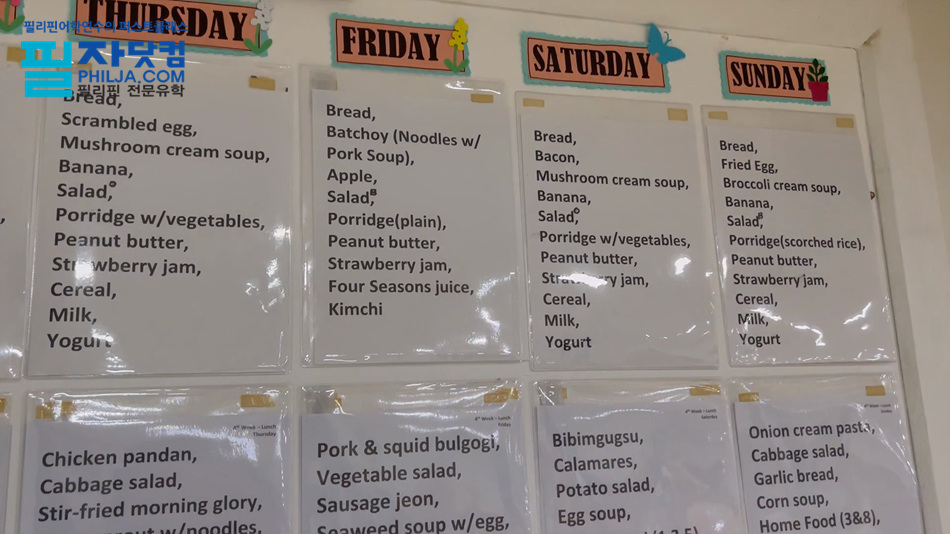 필리핀어학연수의 퍼스트클래스
필자닷컴
PHILJA.COM
필리핀 전문유학
THURSDAY
Bread,
Scrambled egg,
Mushroom cream soup,
Banana,
Salad,
Porridge w/vegetables,
Peanut butter,
Strawberry jam,
Cereal,
Milk,
Yogurt
FRIDAY
Bread,
Batchoy (Noodles w/
Pork Soup),
Apple,
Salad,
Porridge(plain),
Peanut butter,
Strawberry jam,
Four Seasons juice,
Kimchi
SATURDAY
Bread,
Bacon,
Mushroom cream soup,
Banana,
Salad,
Porridge w/vegetables,
Peanut butter,
Strawberry jam,
Cereal,
Milk,
Yogurt
SUNDAY
Bread,
Fried Egg,
Broccoli cream soup,
Banana,
Salad,
Porridge(scorched rice),
Peanut butter,
Strawberry jam,
Cereal,
Milk,
Yogurt
4th Week – Lunch
Thursday
Chicken pandan,
Cabbage salad,
Stir-fried morning glory,
w/noodles,
4th Week – Lunch
Friday
Pork & squid bulgogi,
Vegetable salad,
Sausage jeon,
Seaweed soup w/egg,
4th Week – Lunch
Saturday
Bibimgugsu,
Calamares,
Potato salad,
Egg soup,
4th Week – Lunch
Sunday
Onion cream pasta,
Cabbage salad,
Garlic bread,
Corn soup,
Home Food (3&8),